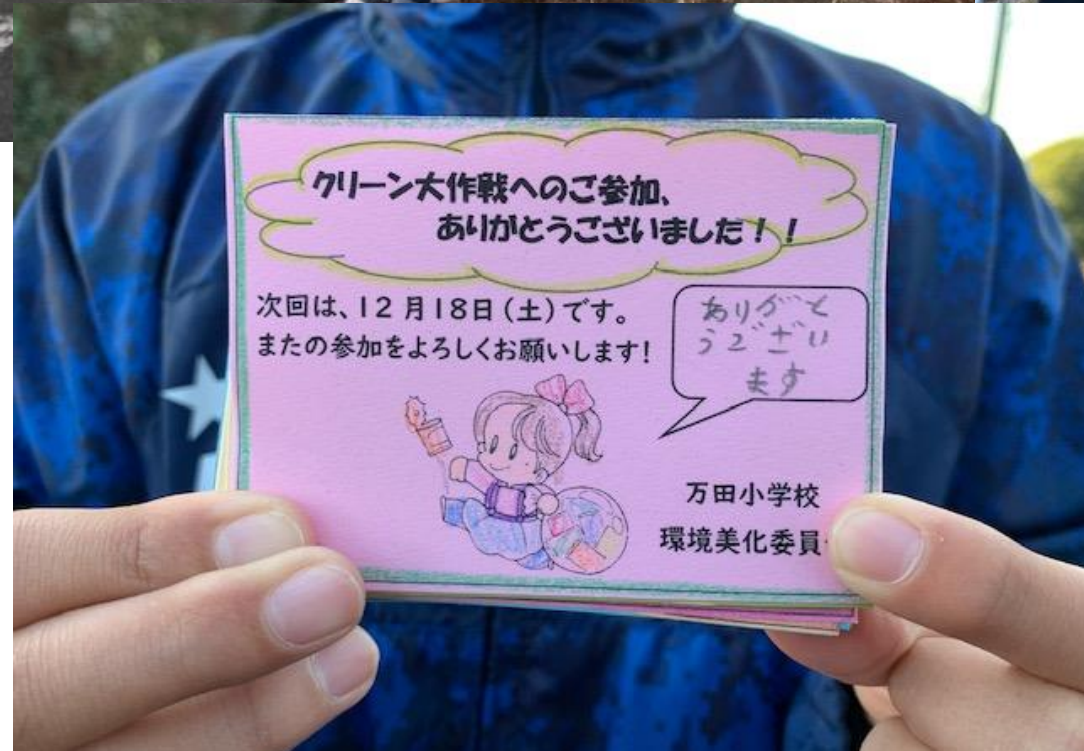 クリーン大作戦へのご参加、
ありがとうございました！！
次回は、12月18日(土)です。
またの参加をよろしくお願いします!
ありがと
うござい
ます
万田小学校
環境美化委員